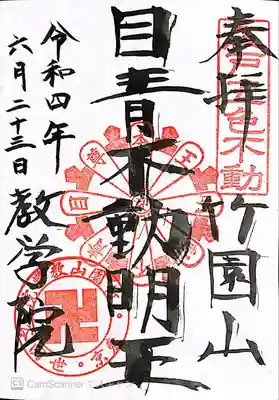 奉拝 竹園山
江戸五色不動
目青不動明王
令和四年
六月二十三日 教学院
CS CamScanner